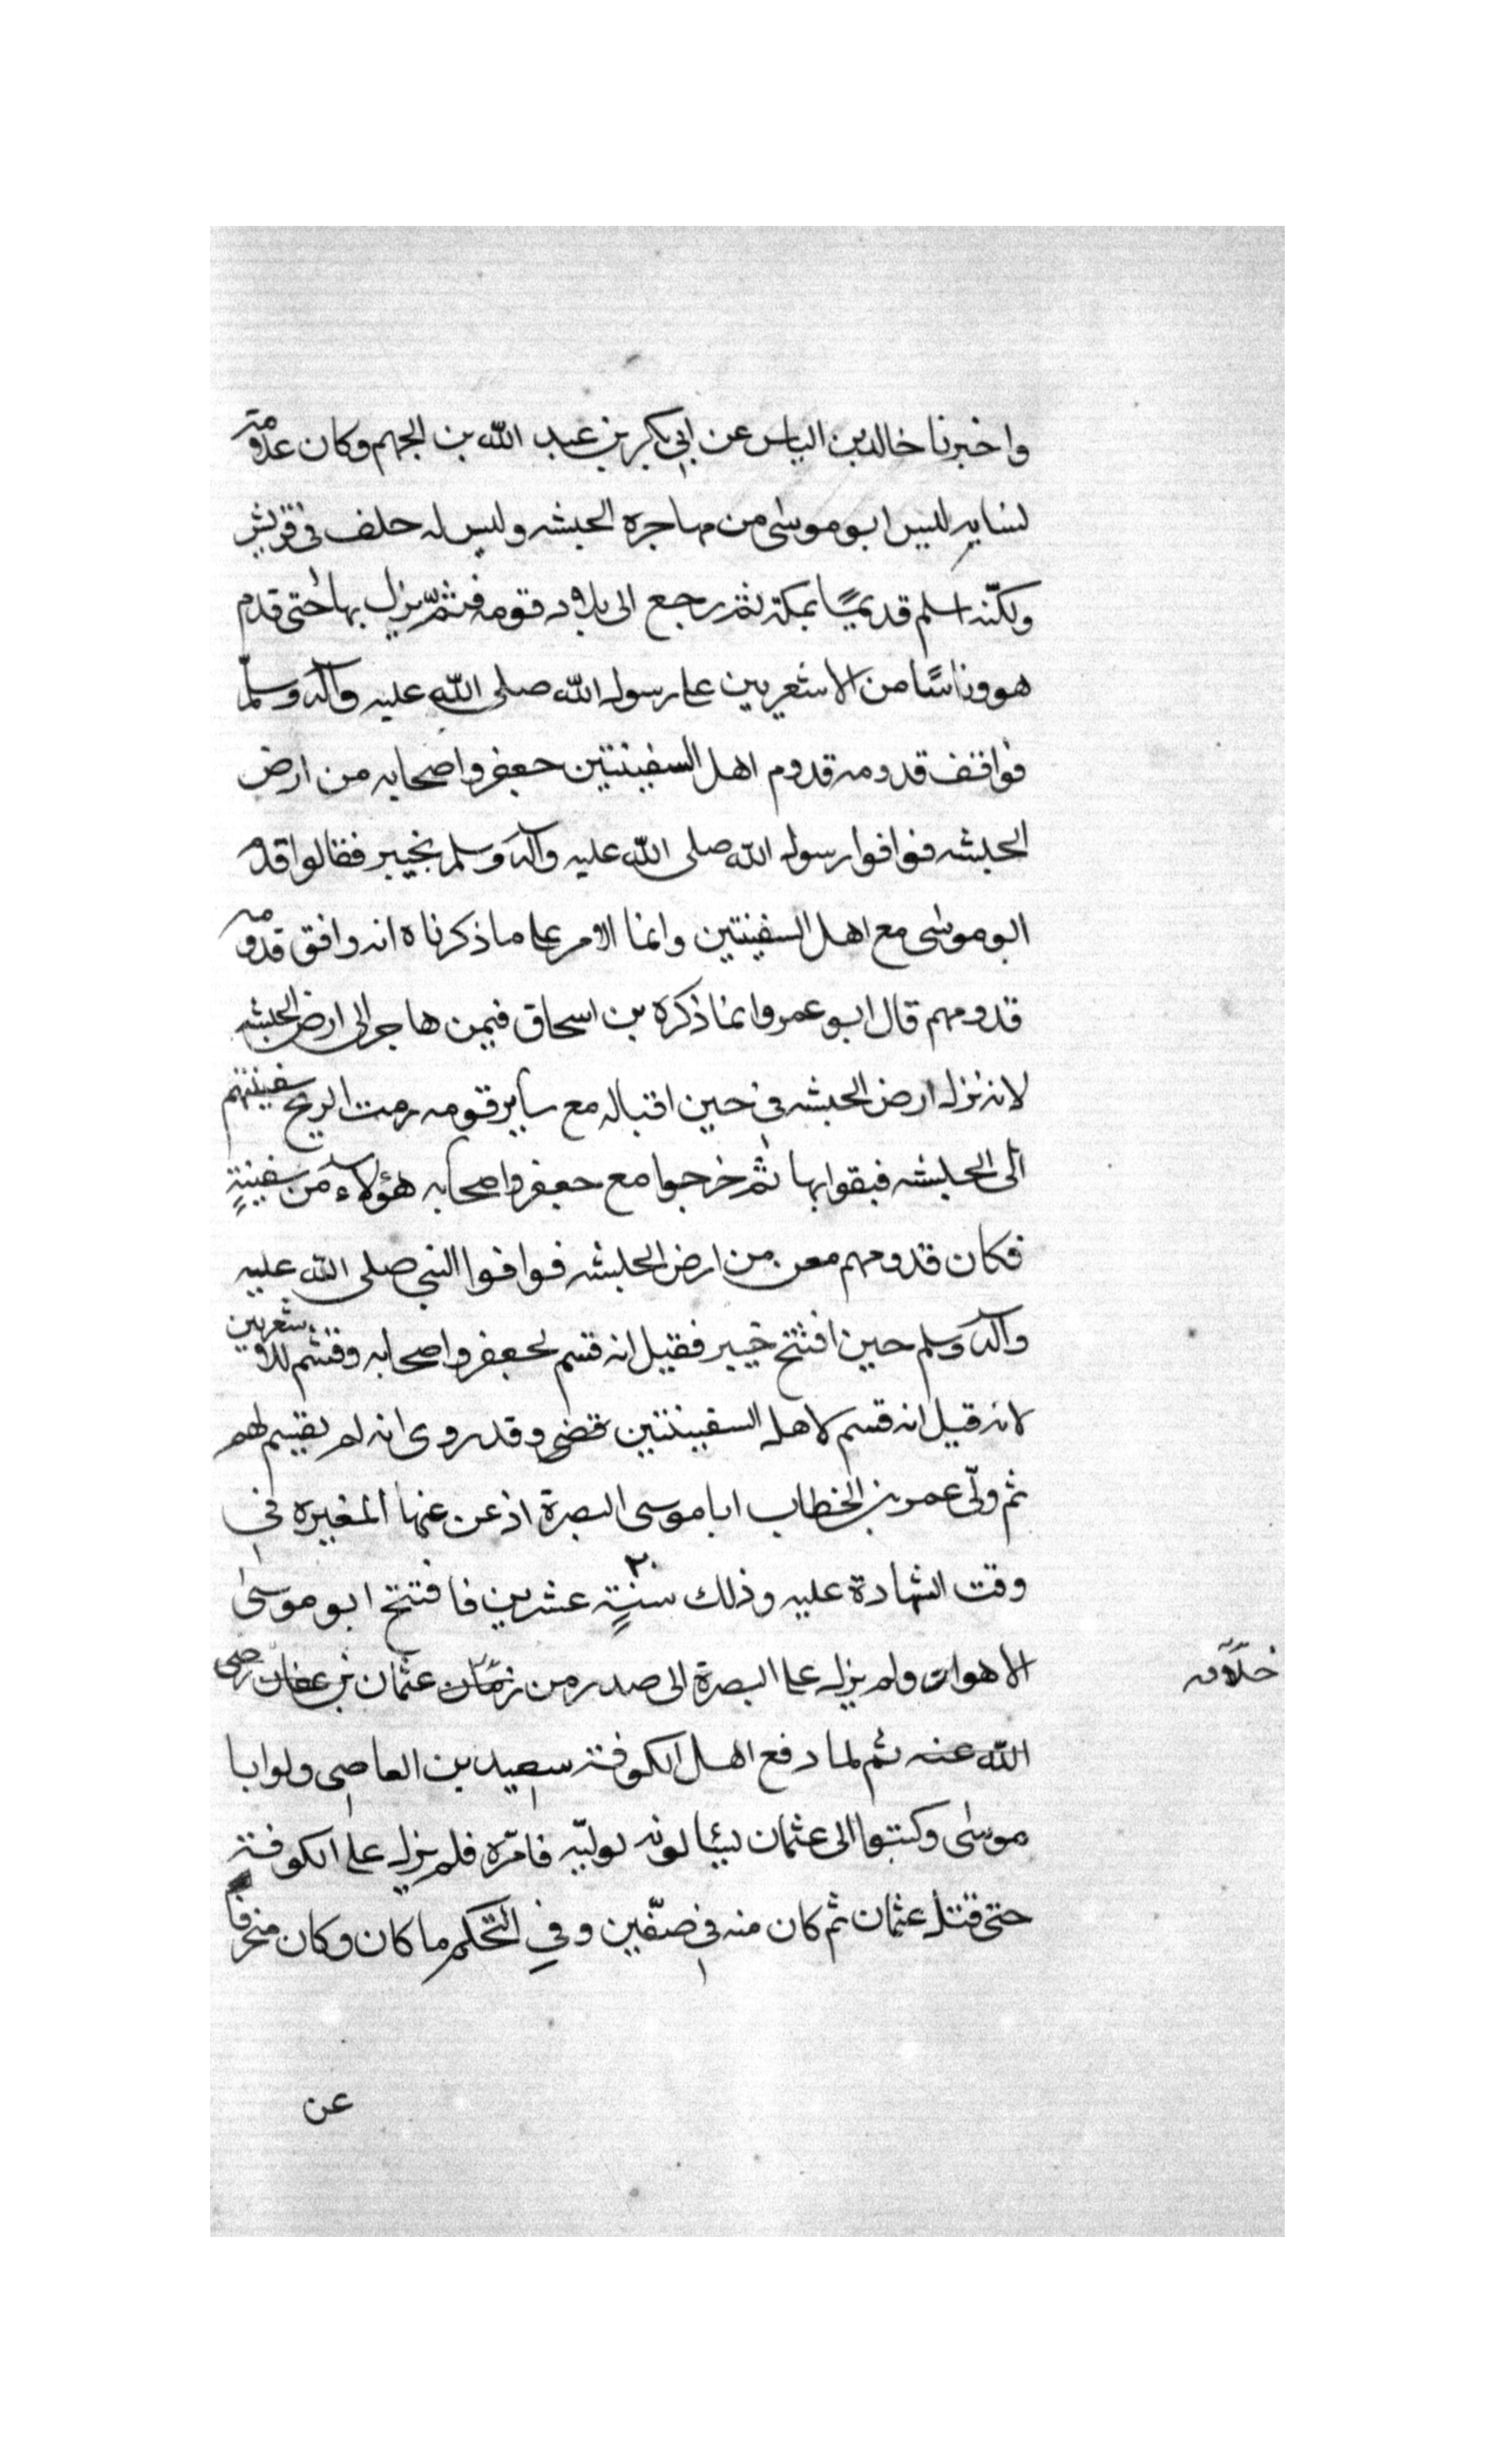 واخبرنا خالد بن الياس عن ابي بكر بن عبد الله بن الجهم وكان علامة
نسابه ليس ابو موسى من مهاجرة الحبشه وليس له حلف في قريش
ولكنّه اسلم قديمًا بمكة ثم رجع الى بلاد قومه فثمّ يزل بها حتى قدم
هو وناسًا من الاشعريين على رسول الله صلى الله عليه وآله وسلّم
فوافقف قدومه قدوم اهل السفينتين جعفر واصحابه من ارض
الحبشه فوافوا رسول الله صلى الله عليه وآله وسلم بخيبر فقالوا قدم
ابو موسى مع اهل السفينتين وانما الامر على ما ذكرناه انه وافق قدومه
قدومهم قال ابو عمر وانما ذكره بن اسحاق فيمن هاجر الى ارض الحبشه
لانه نزل ارض الحبشه في حين اقباله مع ساير قومه رمت الريح سفينتهم
الى الحبشه فبقوا بها ثم خرجوا مع جعفر واصحابه هؤلاء من سفينةٍ
فكان قدومهم معن من ارض الحبشه فوافوا النبي صلى الله عليه
وآله وسلم حين افتتح خيبر فقيل انه قسم لجعفر واصحابه وقسم للاشعريين
لانه قيل انه قسم لاهل السفينتين قضى وقد روى انه لم يقسم لهم
ثم ولّى عمر بن الخطاب ابا موسى البصرة اذ عن عنها المغيره في
وقت الشهادة عليه وذلك سنةٍ ٢٠ عشرين فافتتح ابو موسىٰ
الاهواز ولم يزل على البصرة الى صدر من زمان عثمان بن عفان رضى
الله عنه ثم لما دفع اهل الكوفة سعيد بن العاصى ولوا ابا
موسى وكتبوا الى عثمان يسٔالونه يوليّه فامّره فلم يزل على الكوفة
حتى قتل عثمان ثم كان منه في صفّين وفي التحكم ما كان وكان منحرفا
خلافه
عن